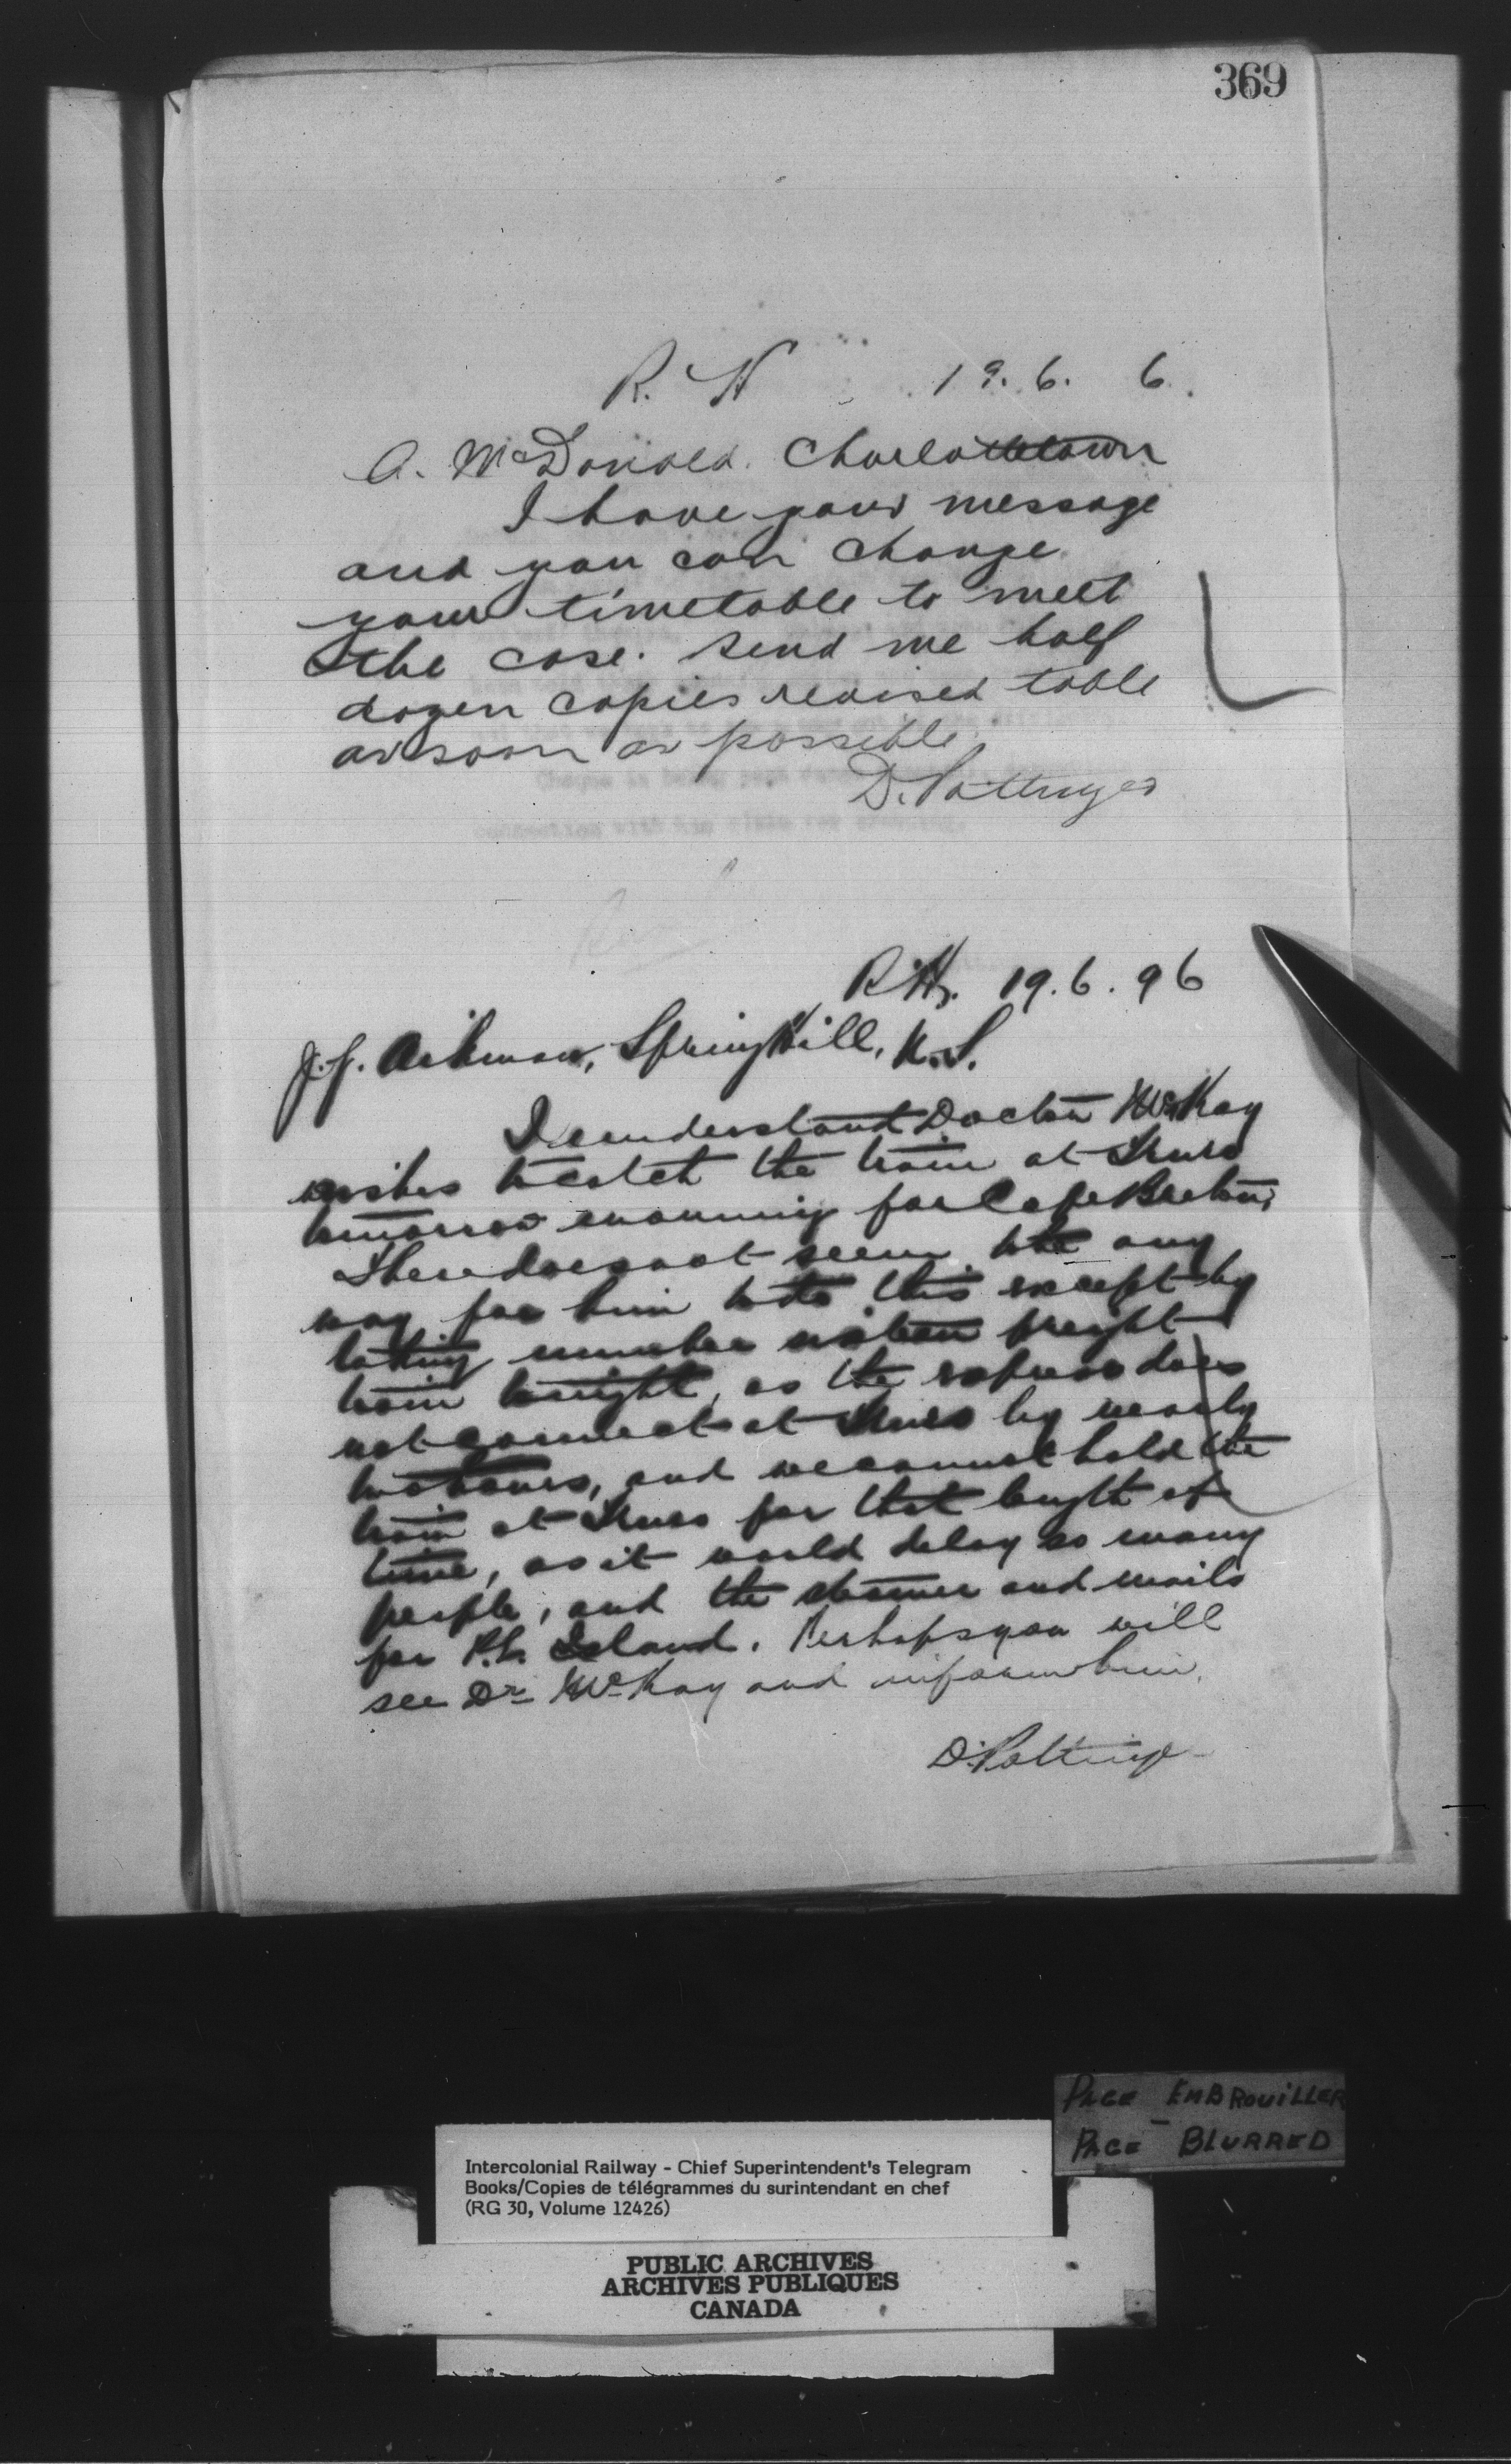 369
R. H 19. 6. 6.
A. McDonald. Charlottetown
I have your message
and you can change
your timetable to meet
the case. Send me half
dozen copies revised table
as soon as possible.
D. Pottinger
R. H. 19. 6. 96
Springhill, N.S.
I understand Doctor McKay
wishes to catch the train at Truro
tomorrow morning for Cape Breton,
There does not seem to be any
way for him to do this except by
taking number sixteen freight
train tonight, as the express does
not connect at Truro by nearly
two hours, and we cannot hold the
train at Truro for that length of
time, as it would delay so many
people, and the steamer and mails
for P.E. Island. Perhaps you will
see Dr McKay and inform him.
D. Pottinger
PAGE EMBROUILLER
PAGE BLURRED
Intercolonial Railway - Chief Superintendent's Telegram
Books/Copies de télégrammes du surintendant en chef
(RG 30, Volume 12426)
PUBLIC ARCHIVES
ARCHIVES PUBLIQUES
CANADA